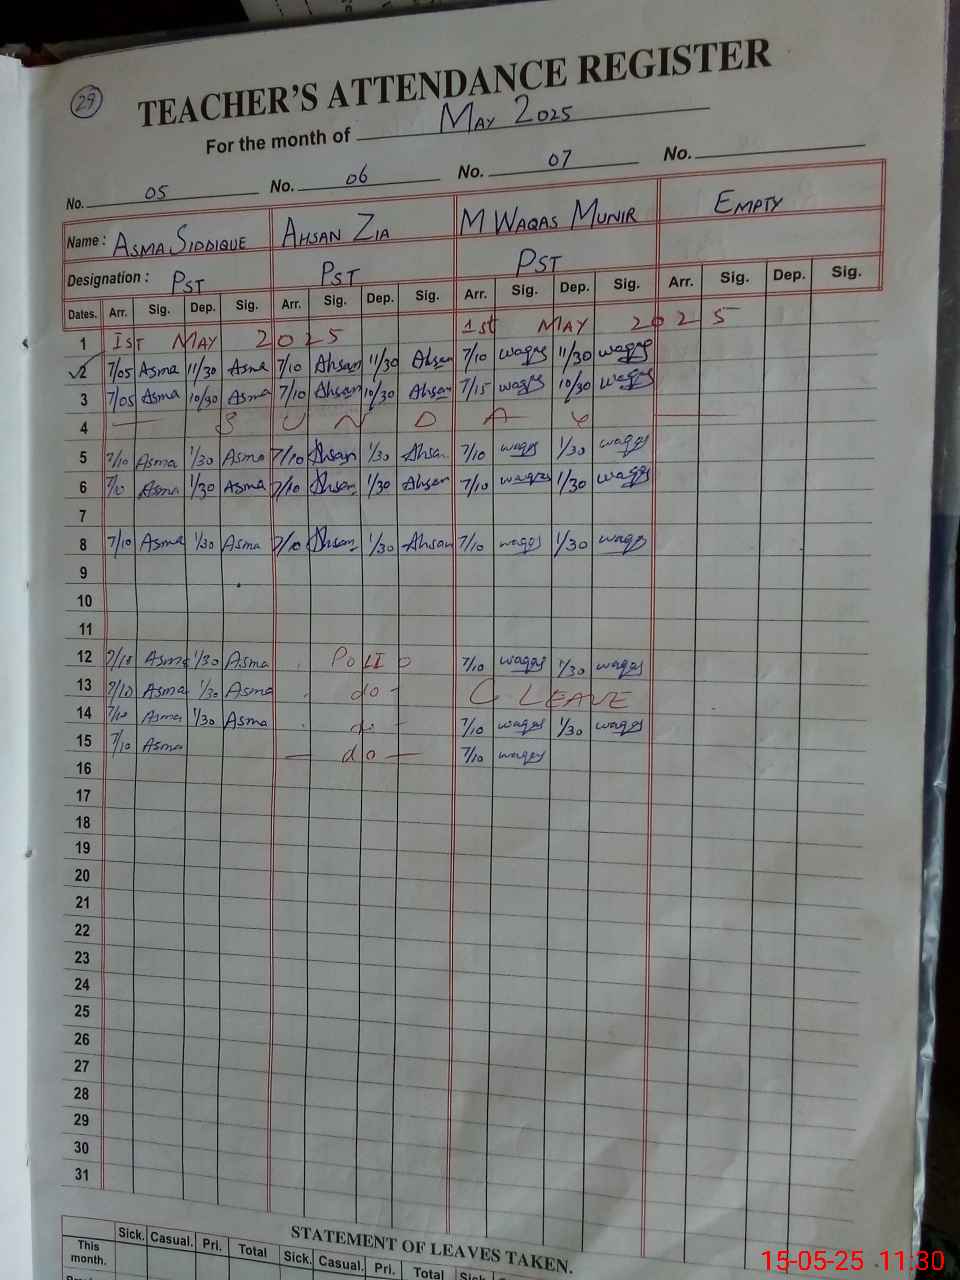 29
TEACHER'S ATTENDANCE REGISTER
For the month of May 2025
No. 05 No. 06 No. 07 No.
Name: ASMA SIDDIQUE AHSAN ZIA M WAQAS MUNIR EMPTY
Designation: PST PST PST
Dates. Arr. Sig. Dep. Sig. Arr. Sig. Dep. Sig. Arr. Sig. Dep. Sig. Arr. Sig. Dep. Sig.
1 Ist MAY 2025 1st MAY 2025
2 7/05 Asma 11/30 Asma 7/10 Ahsan 11/30 Ahsan 7/10 waqas 11/30 waqas
3 7/05 Asma 10/30 Asma 7/10 Ahsan 10/30 Ahsan 7/15 waqas 10/30 waqas
4 S U N D A Y
5 7/10 Asma 1/30 Asma 7/10 Ahsan 1/30 Ahsan 7/10 waqas 1/30 waqas
6 7/10 Asma 1/30 Asma 7/10 Ahsan 1/30 Ahsan 7/10 waqas 1/30 waqas
7
8 7/10 Asma 1/30 Asma 7/10 Ahsan 1/30 Ahsan 7/10 waqas 1/30 waqas
9
10
11
12 7/10 Asma 1/30 Asma POLIO 7/10 waqas 1/30 waqas
13 7/10 Asma 1/30 Asma do C LEAVE
14 7/10 Asma 1/30 Asma do 7/10 waqas 1/30 waqas
15 7/10 Asma do 7/10 waqas
16
17
18
19
20
21
22
23
24
25
26
27
28
29
30
31
STATEMENT OF LEAVES TAKEN.
This month. Sick. Casual. Pri. Total Sick. Casual. Pri. Total Sick
15-05-25 11:30